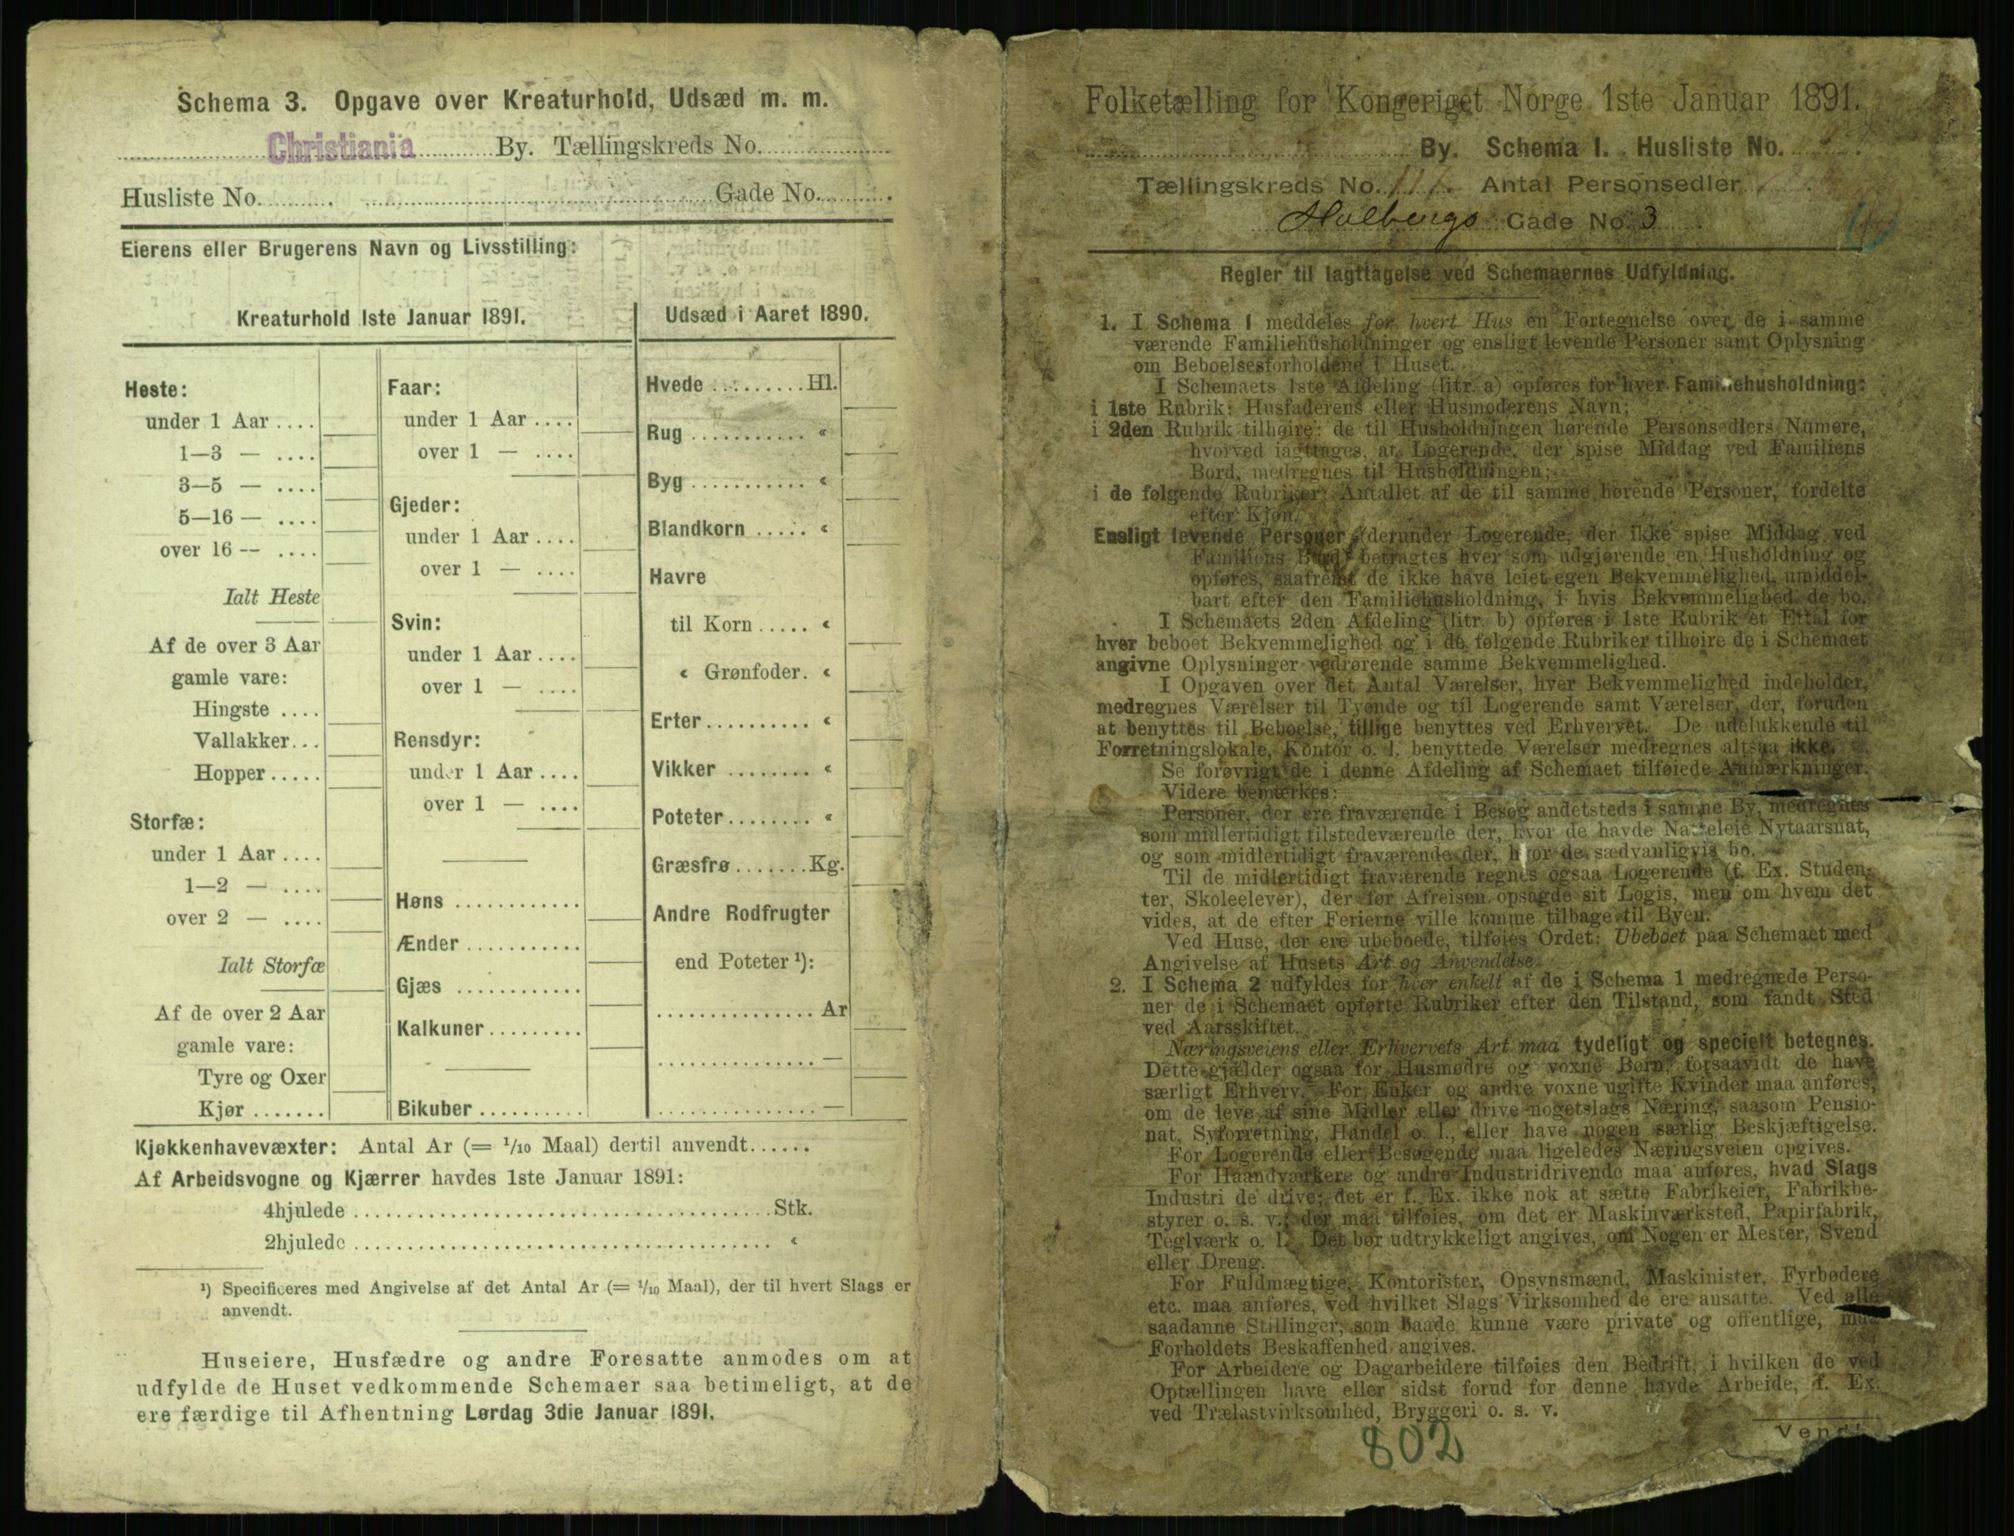 Schema 3. Opgave over Kreaturhold, Udsæd m. m.
Christiania By. Tællingskreds No.
Husliste No. Gade No.
Eierens eller Brugerens Navn og Livsstilling:
Kreaturhold 1ste Januar 1891.
Heste:
under 1 Aar ....
1—3 — ....
3—5 — ....
5—16 — ....
over 16 -- ....
Ialt Heste
Af de over 3 Aar
gamle vare:
Hingste ....
Vallakker...
Hopper.....
Storfæ:
under 1 Aar ....
1—2 — ....
over 2 — ....
Ialt Storfæ
Af de over 2 Aar
gamle vare:
Tyre og Oxer
Kjør .......
Faar:
under 1 Aar ....
over 1 — ....
Gjeder:
under 1 Aar ....
over 1 — ....
Svin:
under 1 Aar ....
over 1 — ....
Rensdyr:
under 1 Aar ....
over 1 — ....
Høns ............
Ænder ...........
Gjæs ............
Kalkuner.........
Bikuber ..........
Udsæd i Aaret 1890.
Hvede .........Hl.
Rug ........... «
Byg ........... «
Blandkorn ..... «
Havre
til Korn ..... «
« Grønfoder. «
Erter.......... «
Vikker ........ «
Poteter........ «
Græsfrø .......Kg.
Andre Rodfrugter
end Poteter ¹):
............... Ar
............... —
............... —
Kjøkkenhavevæxter: Antal Ar (= ¹/₁₀ Maal) dertil anvendt......
Af Arbeidsvogne og Kjærrer havdes 1ste Januar 1891:
4hjulede .......................................Stk.
2hjulede ....................................... «
¹) Specificeres med Angivelse af det Antal Ar (= ¹/₁₀ Maal), der til hvert Slags er
anvendt.
Huseiere, Husfædre og andre Foresatte anmodes om at
udfylde de Huset vedkommende Schemaer saa betimeligt, at de
ere færdige til Afhentning Lørdag 3die Januar 1891.
Folketælling for Kongeriget Norge 1ste Januar 1891.
By. Schema I. Husliste No.
Tællingskreds No. 111. Antal Personsedler
Holbergs Gade No. 3
Regler til Iagttagelse ved Schemaernes Udfyldning.
1. I Schema 1 meddeles for hvert Hus en Fortegnelse over de i samme
værende Familiehusholdninger og ensligt levende Personer samt Oplysning
om Beboelsesforholdene i Huset.
I Schemaets 1ste Afdeling (litr. a) opføres for hver Familiehusholdning:
i 1ste Rubrik: Husfaderens eller Husmoderens Navn;
i 2den Rubrik tilhøire: de til Husholdningen hørende Personsedlers Numere,
hvorved iagttages, at Logerende, der spise Middag ved Familiens
Bord, medregnes til Husholdningen;
i de følgende Rubriker: Antallet af de til samme hørende Personer, fordelte
efter Kjøn.
Ensligt levende Personer (derunder Logerende, der ikke spise Middag ved
Familiens Bord) betragtes hver som udgjørende en Husholdning og
opføres, saafremt de ikke have leiet egen Bekvemmelighed, umiddel-
bart efter den Familiehusholdning, i hvis Bekvemmelighed de bo.
I Schemaets 2den Afdeling (litr. b) opføres i 1ste Rubrik et Ettal for
hver beboet Bekvemmelighed og i de følgende Rubriker tilhøire de i Schemaet
angivne Oplysninger vedrørende samme Bekvemmelighed.
I Opgaven over det Antal Værelser, hver Bekvemmelighed indeholder,
medregnes Værelser til Tyende og til Logerende samt Værelser, der, foruden
at benyttes til Beboelse, tillige benyttes ved Erhvervet. De udelukkende til
Forretningslokale, Kontor o. l. benyttede Værelser medregnes altsaa ikke.
Se forøvrigt de i denne Afdeling af Schemaet tilføiede Anmærkninger.
Videre bemærkes:
Personer, der ere fraværende i Besøg andetsteds i samme By, medregnes
som midlertidigt tilstedeværende der, hvor de havde Natteleie Nytaarsnat,
og som midlertidigt fraværende der, hvor de sædvanligvis bo.
Til de midlertidigt fraværende regnes ogsaa Logerende (f. Ex. Studen-
ter, Skoleelever), der før Afreisen opsagde sit Logis, men om hvem det
vides, at de efter Ferierne ville komme tilbage til Byen.
Ved Huse, der ere ubeboede, tilføies Ordet: Ubeboet paa Schemaet med
Angivelse af Husets Art og Anvendelse.
2. I Schema 2 udfyldes for hver enkelt af de i Schema 1 medregnede Perso-
ner de i Schemaet opførte Rubriker efter den Tilstand, som fandt Sted
ved Aarsskiftet.
Næringsveiens eller Erhvervets Art maa tydeligt og specielt betegnes.
Dette gjælder ogsaa for Husmødre og voxne Børn, forsaavidt de have
særligt Erhverv. For Enker og andre voxne ugifte Kvinder maa anføres,
om de leve af sine Midler eller drive nogetslags Næring, saasom Pensio-
nat, Syforretning, Handel o. l., eller have nogen særlig Beskjæftigelse.
For Logerende eller Besøgende maa ligeledes Næringsveien opgives.
For Haandværkere og andre Industridrivende maa anføres, hvad Slags
Industri de drive; det er f. Ex. ikke nok at sætte Fabrikeier, Fabrikbe-
styrer o. s. v.; der maa tilføies, om det er Maskinværksted, Papirfabrik,
Teglværk o. l. Det bør udtrykkeligt angives, om Nogen er Mester, Svend
eller Dreng.
For Fuldmægtige, Kontorister, Opsynsmænd, Maskinister, Fyrbødere
etc. maa anføres, ved hvilket Slags Virksomhed de ere ansatte. Ved alle
saadanne Stillinger, som baade kunne være private og offentlige, maa
Forholdets Beskaffenhed angives.
For Arbeidere og Dagarbeidere tilføies den Bedrift, i hvilken de ved
Optællingen have eller sidst forud for denne havde Arbeide, f. Ex.
ved Trælastvirksomhed, Bryggeri o. s. v.
802